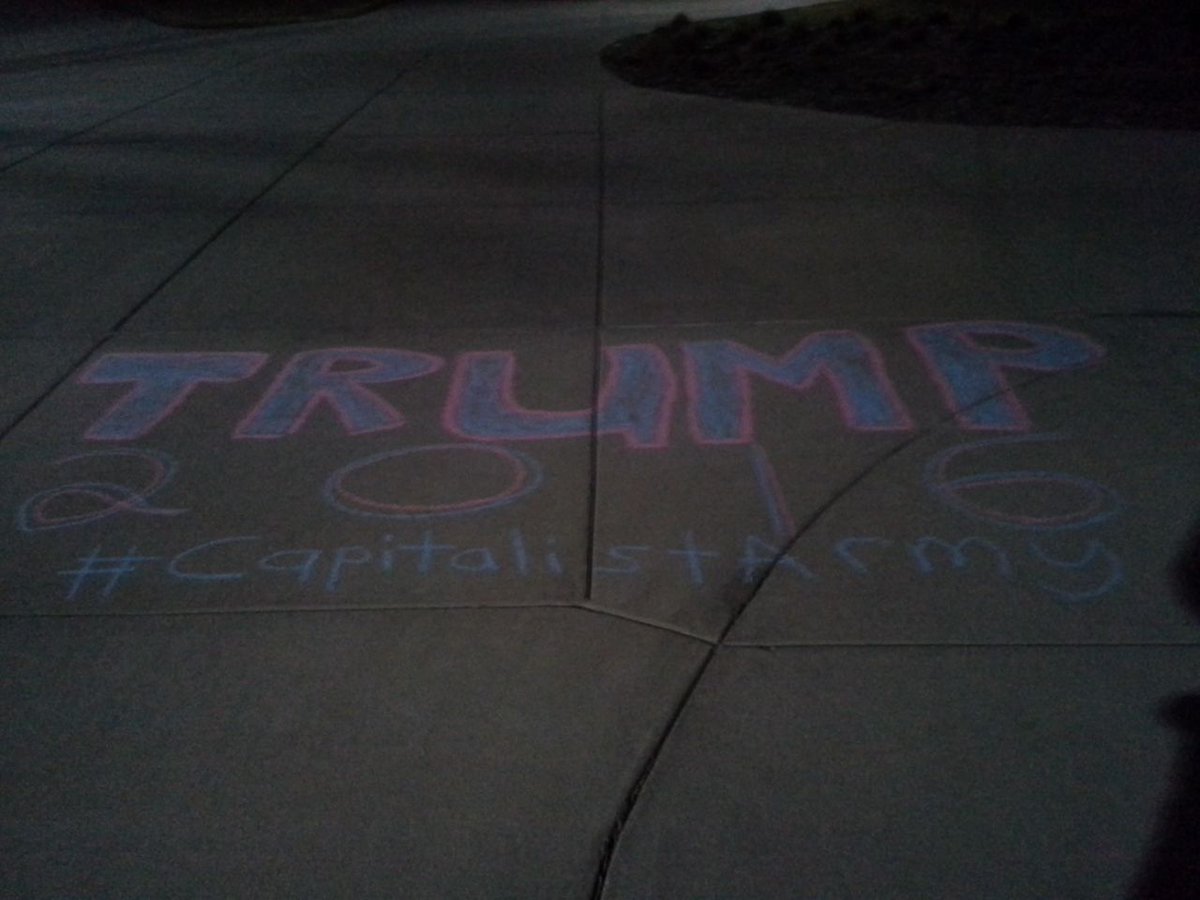 TRUMP
2016
#CapitalistArmy